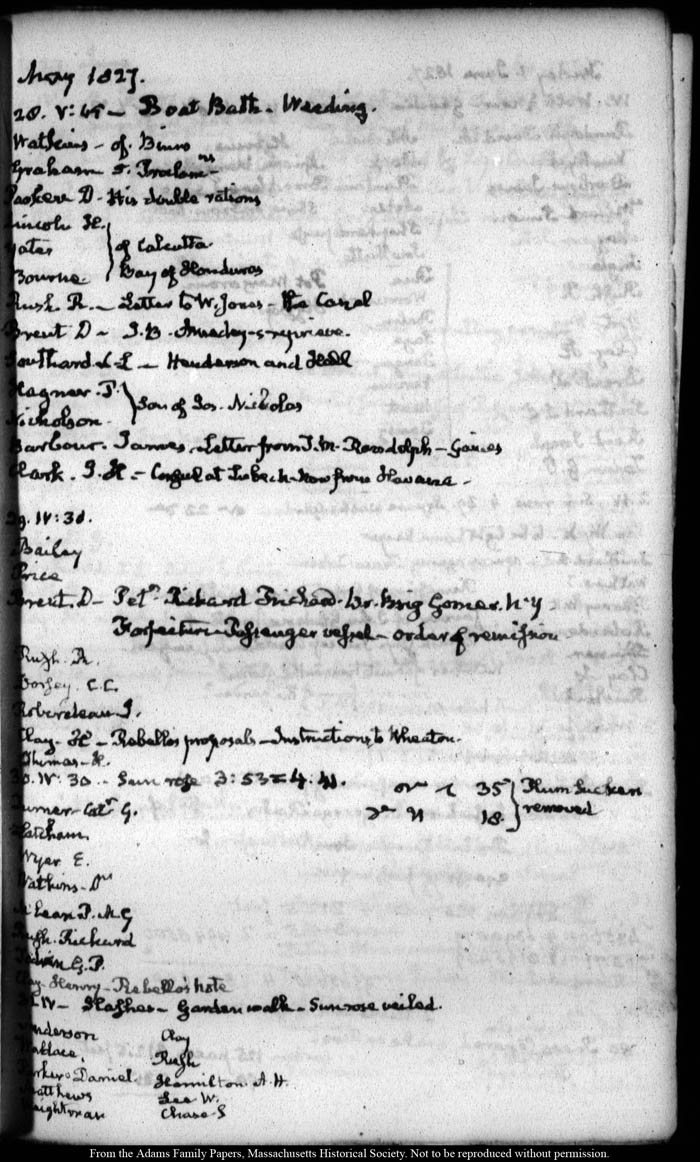 May 1827.
28. V: 45 - Boat Bath. Weeding.
Watkins - of Binns
Graham
Parker D - His double rations
Lincoln
Yates } of Calcutta
Bourne } Bay of Honduras
Rush R. - Letter to W. Jones - Canal
Brent D - reprieve.
Southard S. L - Henderson and
Hagner. P. } Son of Jos. Nicholas
Nicholson.
Barbour. James. Letter from T. M. Randolph - Gaines
Clark. J. H. - Consul at Lubeck - now from Havana -
29. IV: 30.
Bailey
Price
Brent. D - Petn. Richard Br. Brig Gomer. N. Y
Forfeiture Passenger vessel - order of remission
Rush. R.
Dorsey C. C.
Roberdeau I.
Clay. H - Rebello's proposals - Instructions to Wheaton.
Thomas
30. IV: 30 - Sun rose 3: 53 = 4: 41. 35 } Plum Suckers
Turner 18. } removed
Wyer E.
Watkins
McLean P. M. G
Rush. Richard
Clay. Henry - Rebello's note
31. IV - Garden walk - Sun rose veiled.
Anderson Clay
Wallace. Rush
Parker Daniel Hamilton. A. H.
Matthews Lee W.
Weightman Chase. S
From the Adams Family Papers, Massachusetts Historical Society. Not to be reproduced without permission.